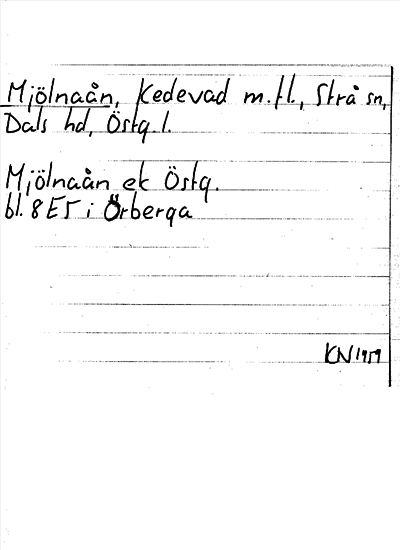 Mjölnaån, Kedevad m.fl., Strå sn,
Dals hd, Östg.l.
Mjölnaån ek Östg.
bl. 8 E5 i Örberga
KN 1959